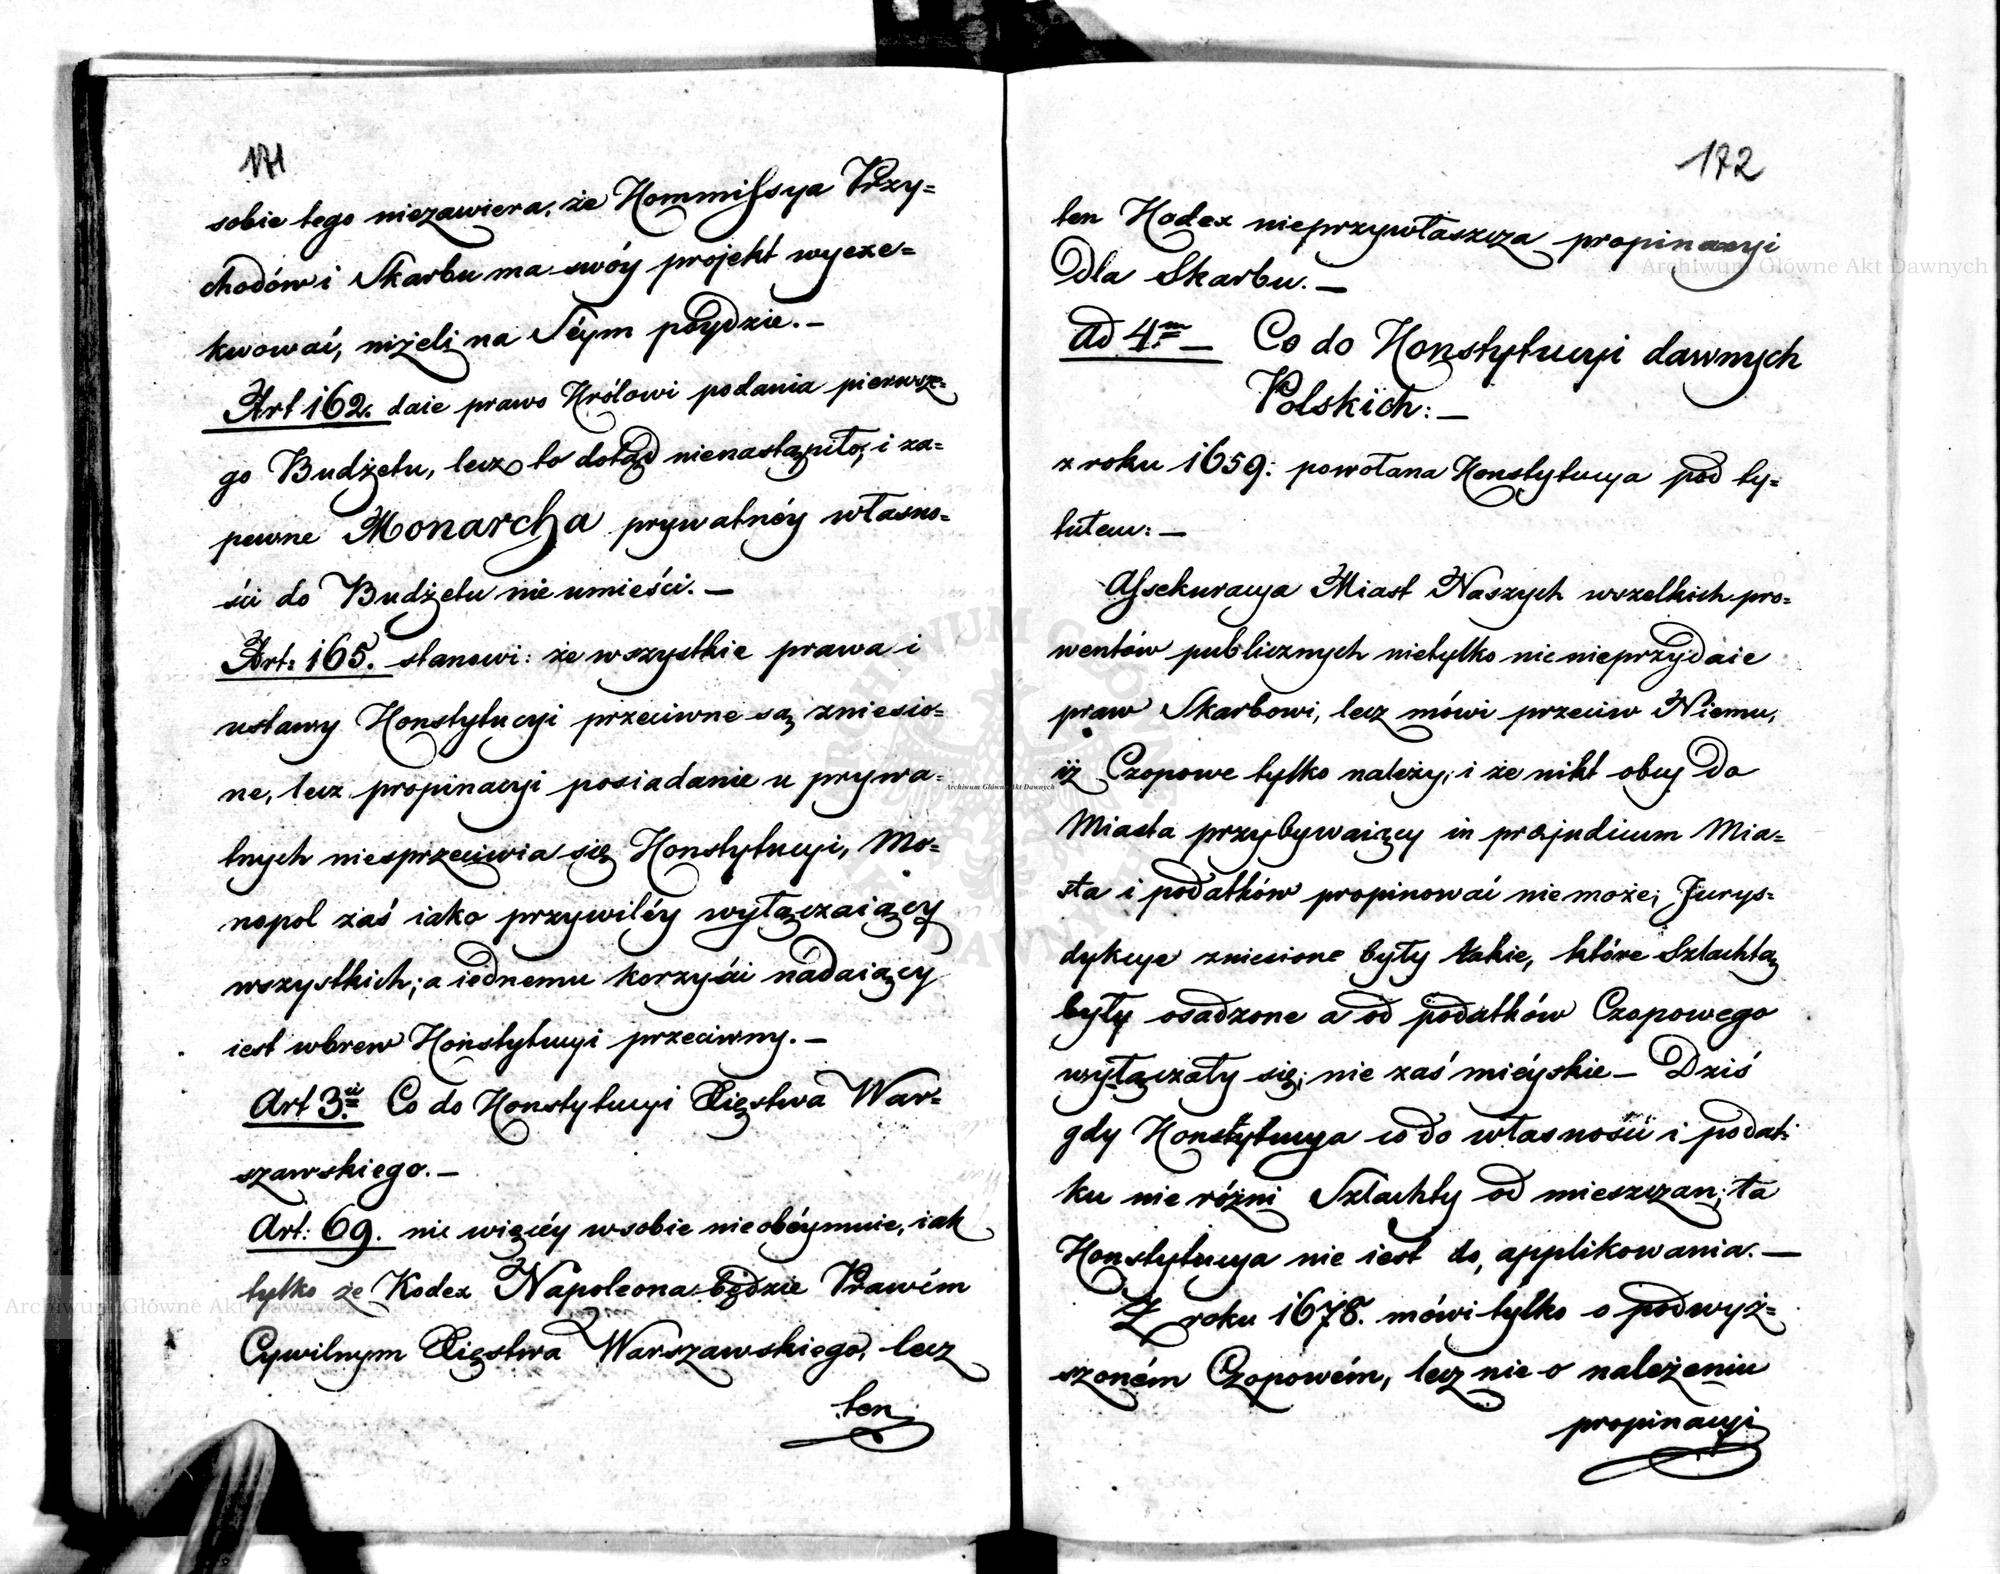 171
sobie tego niezawiera, że Kommissya Przy=
chodów i Skarbu ma swóy projekt wyexe=
kwować, niżeli na Séym póydzie. —
Art 162. daie prawo Królowi podania pierwsze=
go Budżetu, lecz to dotąd nienastąpiło; i za=
pewne Monarcha prywatnéy własno=
ści do Budżetu nie umieści. —
Art: 165. stanowi: że wszystkie prawa i
ustawy Konstytucyi przeciwne są zniesio=
ne, lecz propinacyi posiadanie u prywa=
tnych niesprzeciwia się Konstytucyi, Mo=
nopol zaś iako przywiléy wyłączaiący
wszystkich; a iednemu korzyści nadaiący
iest wbrew Konstytucyi przeciwny. —
Art 3. Co do Konstytucyi Xięstwa War=
szawskiego. —
Art: 69. nic więcéy w sobie nie obéymuie, iak
tylko że Kodex Napoleona będzie Prawém
Cywilnym Xięstwa Warszawskiego, lecz
ten
172
ten Kodex nieprzywłaszcza propinacyi
Dla Skarbu. —
Ad 4m — Co do Konstytucyi dawnych
Polskich: —
z roku 1659: powołana Konstytucya pod ty=
tułem: —
Assekuracya Miast Naszych wszelkich pro=
wentów publicznych nietylko nic nieprzydaie
praw Skarbowi, lecz mówi przeciw Niemu,
iż Czopowe tylko należy; i że nikt obcy do
Miasta przybywaiący in præjudicium Mia=
sta i podatków propinować nie może; Jurys=
dykcye zniesione były takie, które Szlachtą
były osadzone a od podatków Czopowego
wyłączały się; nie zaś mieyskie — Dziś
gdy Konstytucya co do własności i podat=
ku nie różni Szlachty od mieszczan; ta
Konstytucya nie iest do applikowania. —
Z roku 1678. mówi tylko o podwyż=
szoném Czopowém, lecz nie o należeniu
propinacyi
Archiwum Główne Akt Dawnych
Archiwum Główne Akt Dawnych
Archiwum Główne Akt Dawnych
ARCHIWUM GŁÓWNE AKT DAWNYCH